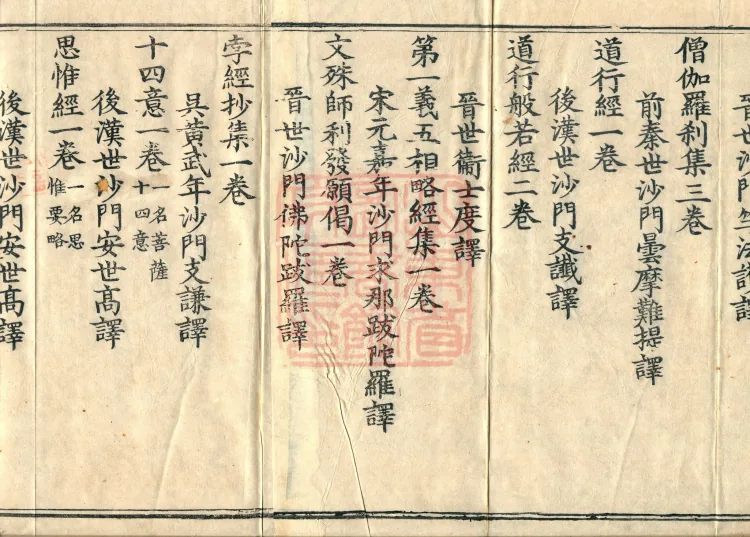 晉世沙門竺法護譯
僧伽羅刹集三卷
前秦世沙門曇摩難提譯
道行經一卷
後漢世沙門支讖譯
道行般若經二卷
晉世衞士度譯
第一義五相略經集一卷
宋元嘉年沙門求那跋陀羅譯
文殊師利發願偈一卷
晉世沙門佛陀跋羅譯
孛經抄集一卷
吳黃武年沙門支謙譯
十四意一卷 一名菩薩十四意
後漢世沙門安世高譯
思惟經一卷 一名思惟要略
後漢世沙門安世高譯